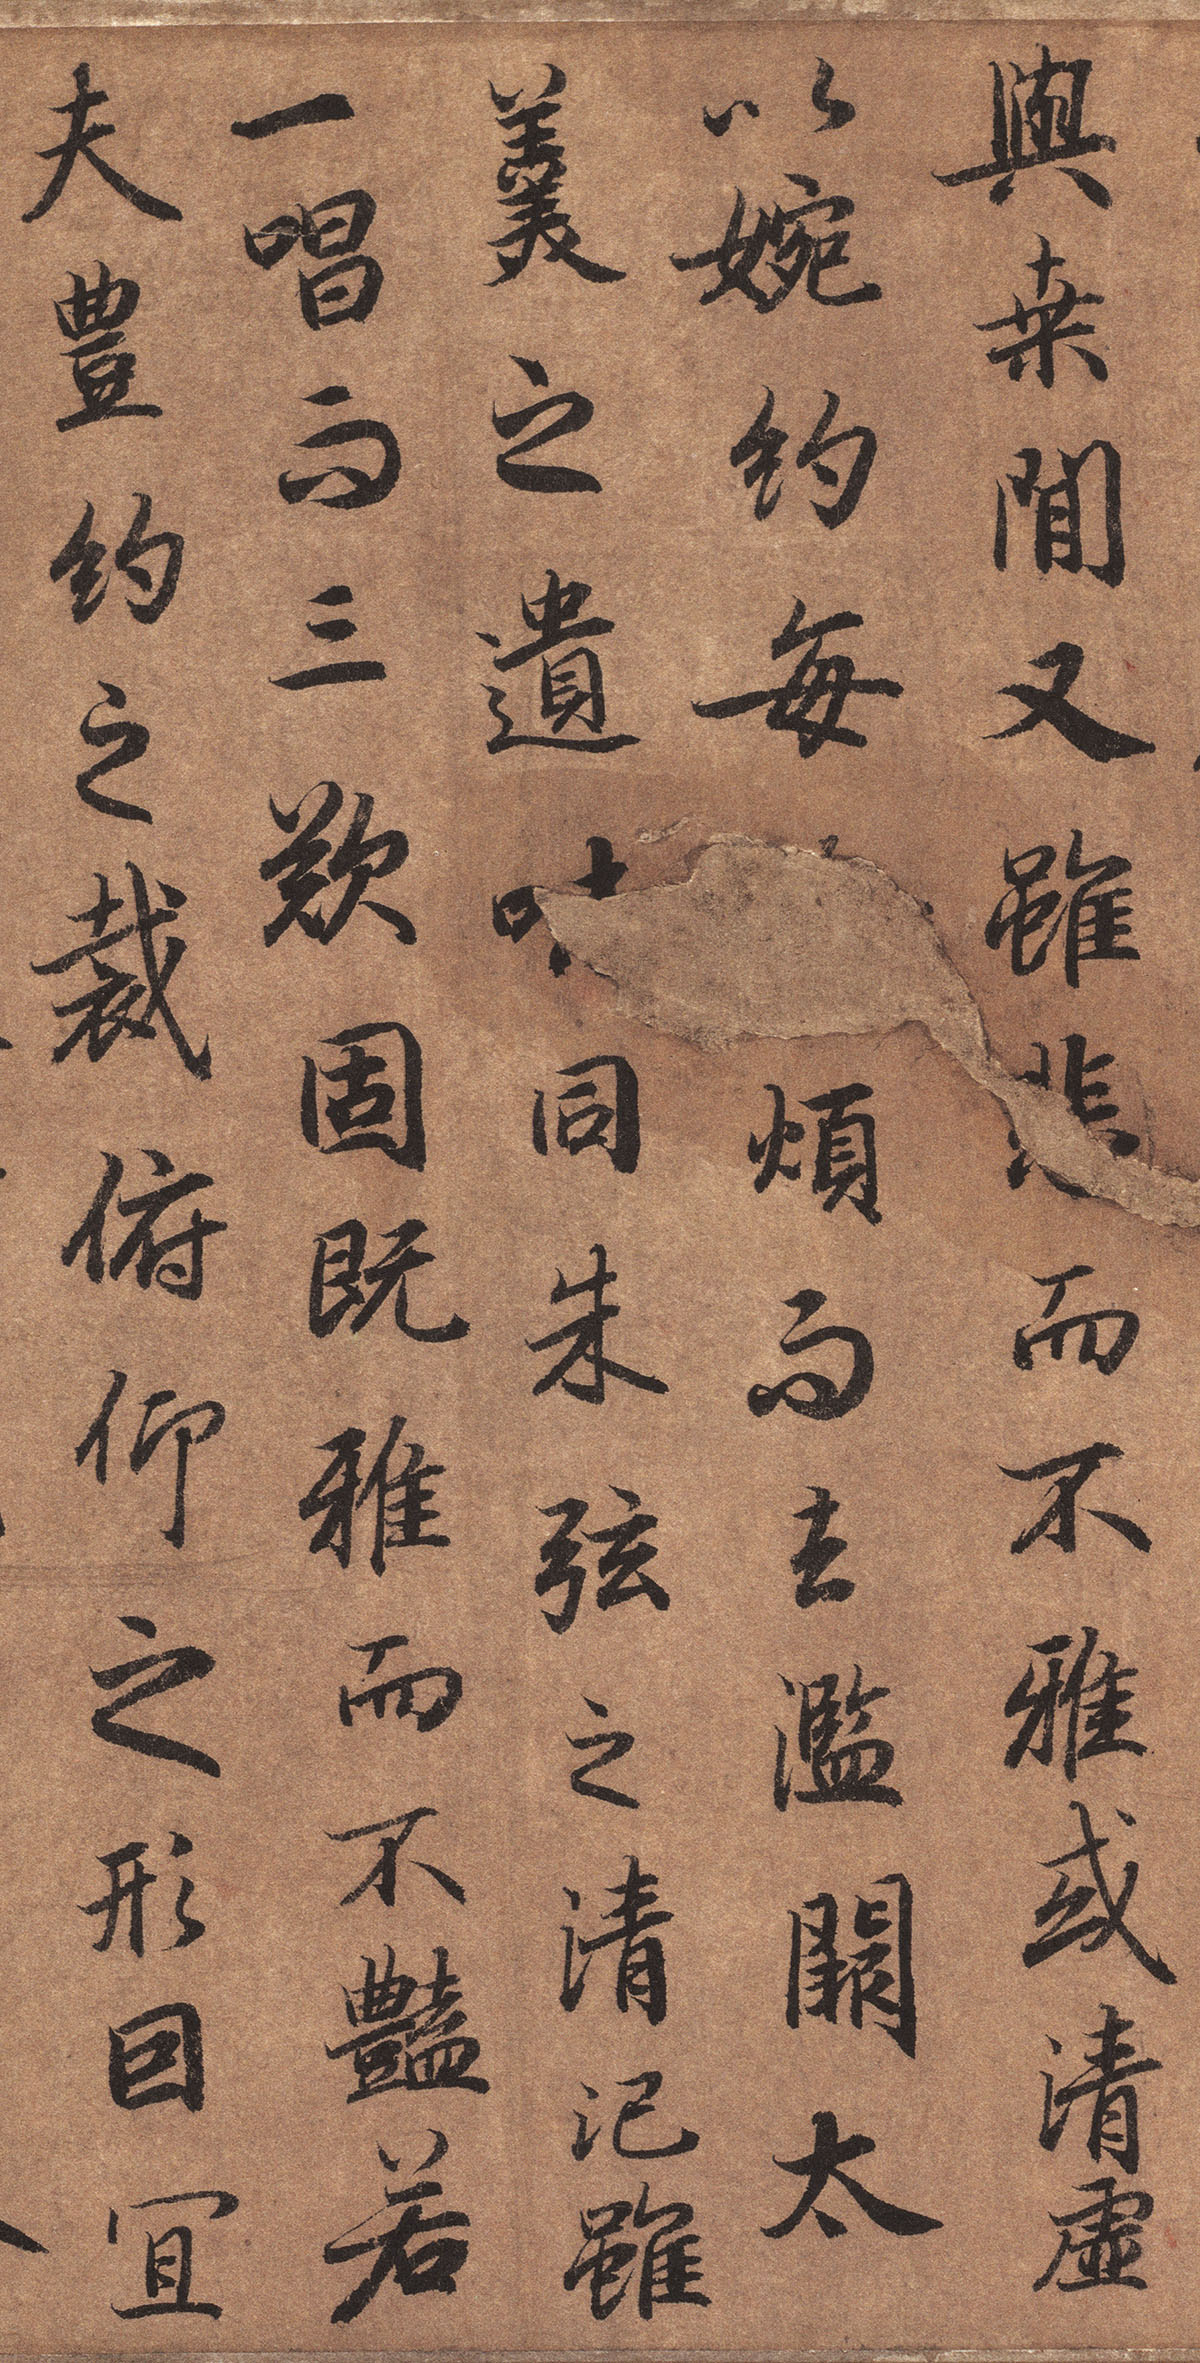 與桒間又雖悲而不雅或清虛
以婉約每煩而去濫闕太
羹之遺味同朱弦之清汜雖
一唱而三歎固既雅而不豔若
夫豐約之裁俯仰之形因宜